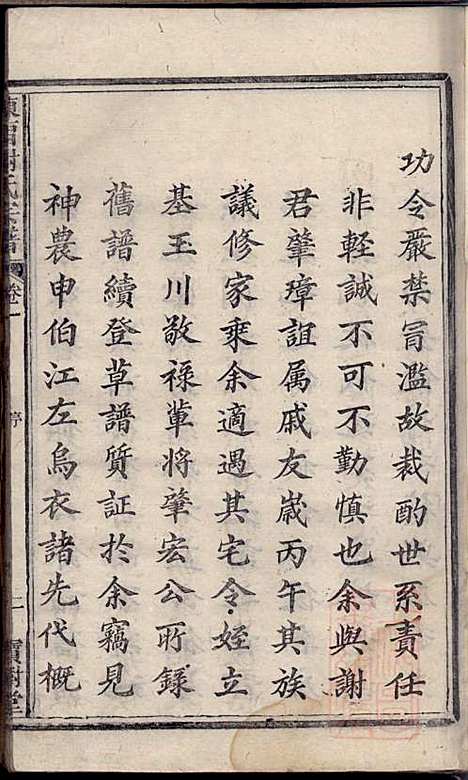 功令嚴禁冒濫故裁酌世系責任
非輕誠不可不勤慎也余與謝
君肇璋誼属戚友嵗丙午其族
議修家乘余適遇其宅令姪立
基玉川敬禄軰將肇宏公所録
舊譜續登草譜質証於余竊見
神農申伯江左烏衣諸先代概
卷一
序
寶樹堂